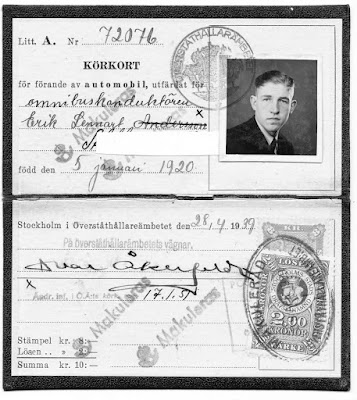 Litt. A. Nr 72076
ÖVERSTÅTHÅLLARÄMBETET
KÖRKORT
för förande av automobil, utfärdat för
omnibuskonduktören
Erik Lennart Andersson x
Makuleras
född den 5 januari 1920
Stockholm i Överståthållareämbetet den 28/4 1939
På överståthållarämbetets vägnar.
Ivar Åkerfeldt
x
Ändr. inf. i Ö.Ä:s körk.
17.1.51
Makuleras
Makuleras
KR
2.00
KRONOR
MAKULERAD
Stämpel kr. 8:—
Lösen .. „ 2:—
Summa kr. 10:—